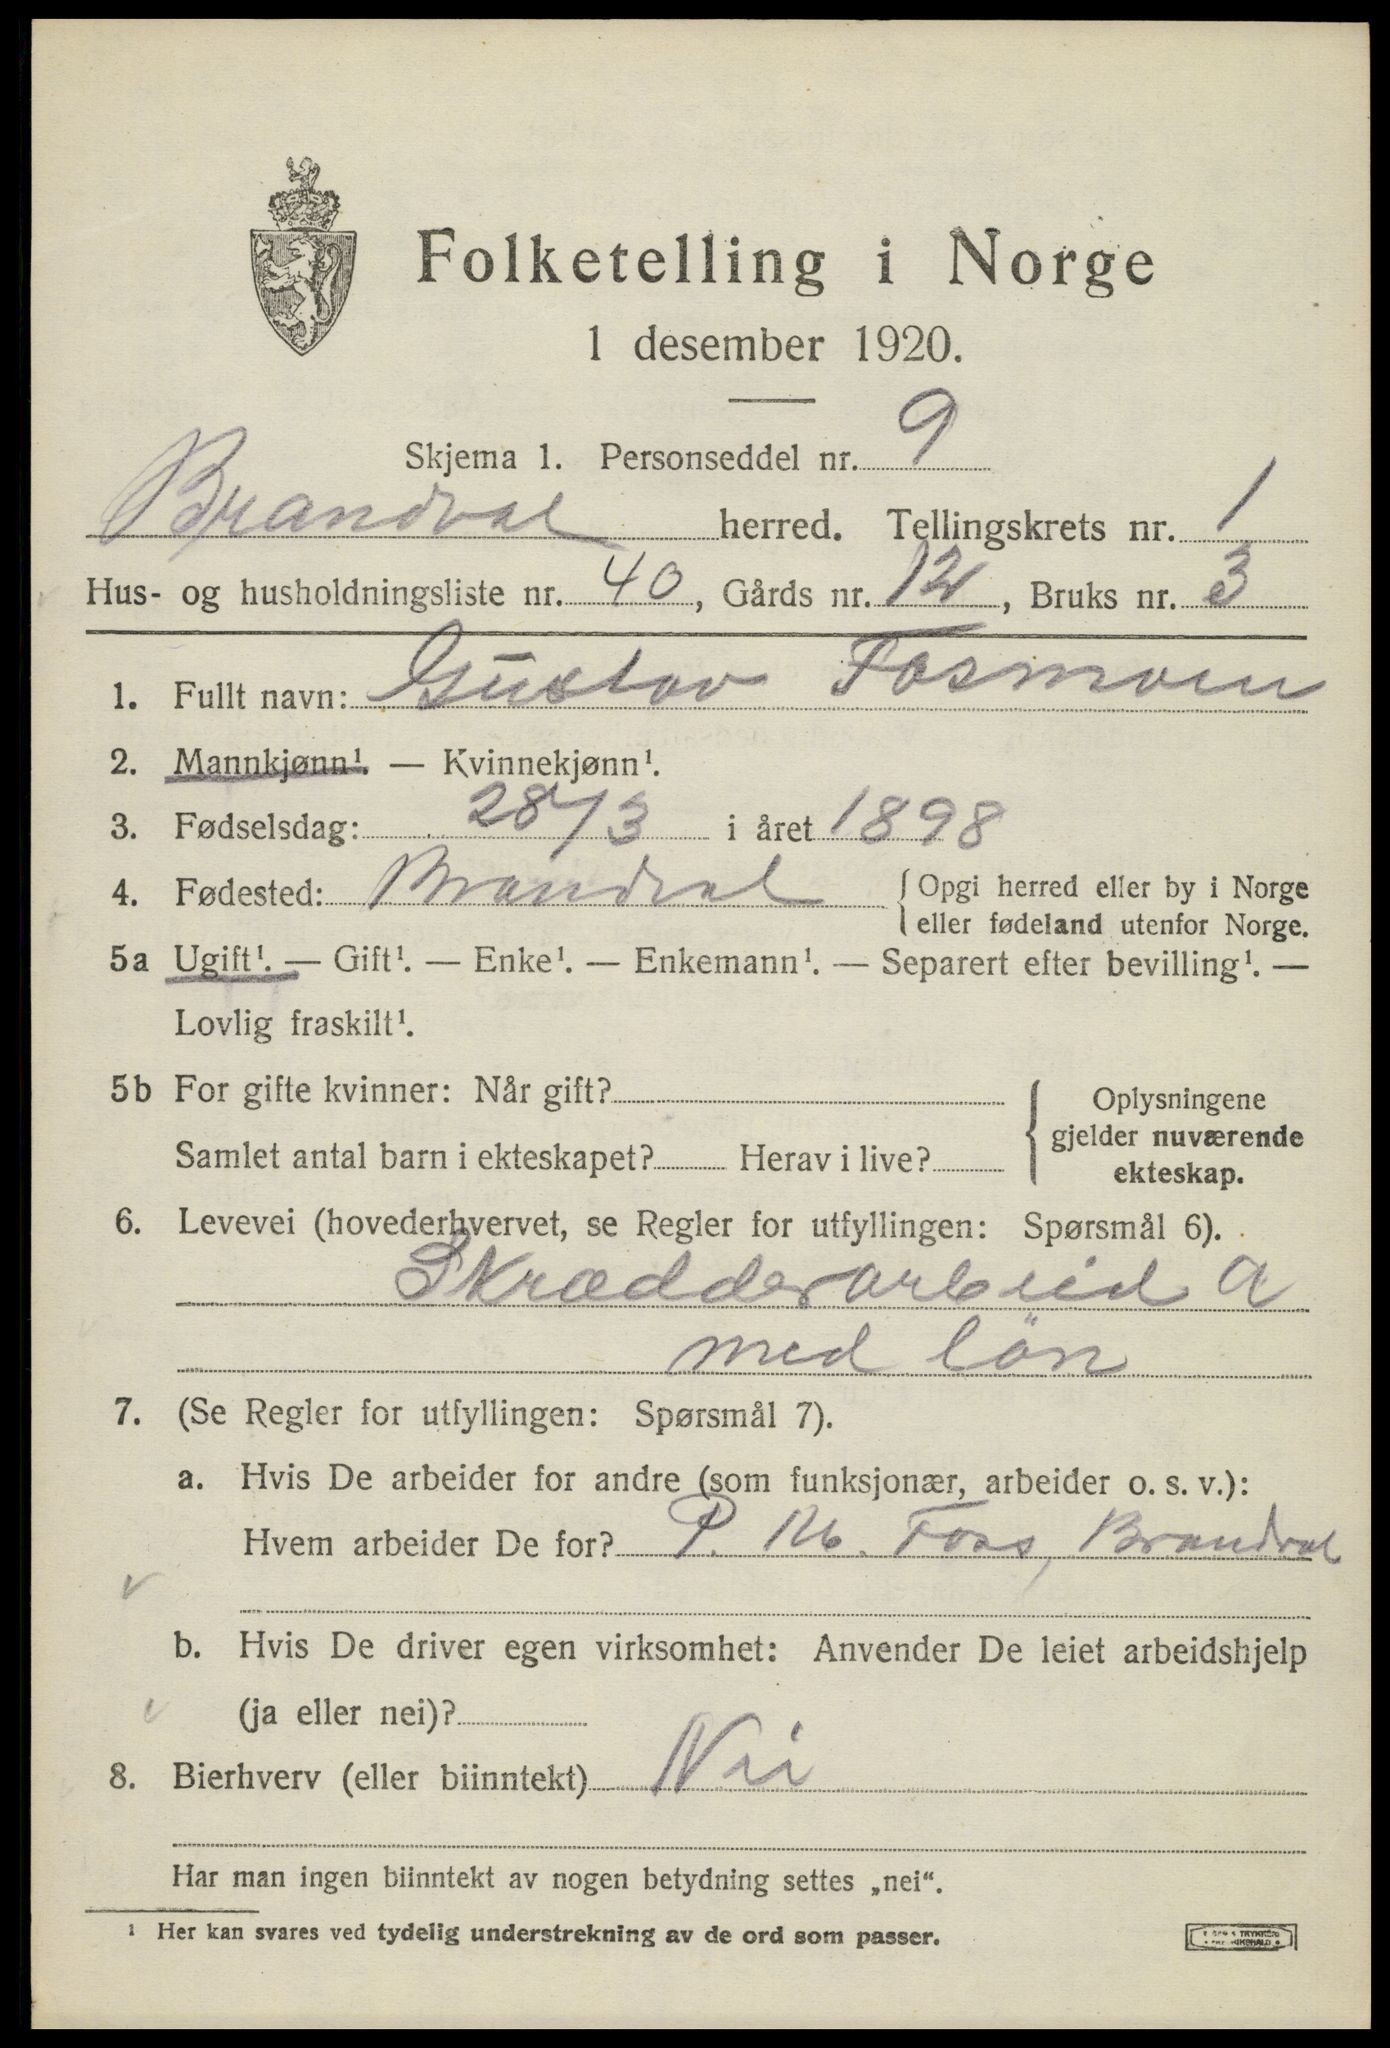 Folketelling i Norge
1 desember 1920.
Skjema 1. Personseddel nr. 9
Brandval herred. Tellingskrets nr. 1
Hus- og husholdningsliste nr. 40, Gårds nr. 12, Bruks nr. 3
1. Fullt navn: Gustav Fosmoen
2. Mannkjønn¹. — Kvinnekjønn¹.
3. Fødselsdag: 28/3 i året 1898
4. Fødested: Brandval { Opgi herred eller by i Norge
eller fødeland utenfor Norge.
5a Ugift¹. — Gift¹. — Enke¹. — Enkemann¹. — Separert efter bevilling¹. —
Lovlig fraskilt¹.
5b For gifte kvinner: Når gift?
Samlet antal barn i ekteskapet? Herav i live?
{ Oplysningene
gjelder nuværende
ekteskap.
6. Levevei (hovederhvervet, se Regler for utfyllingen: Spørsmål 6).
Skrædderarbeid a
med løn
7. (Se Regler for utfyllingen: Spørsmål 7).
a. Hvis De arbeider for andre (som funksjonær, arbeider o. s. v.):
Hvem arbeider De for? P. Foss, Brandval
b. Hvis De driver egen virksomhet: Anvender De leiet arbeidshjelp
(ja eller nei)?
8. Bierhverv (eller biinntekt) Nei
Har man ingen biinntekt av nogen betydning settes „nei“.
¹ Her kan svares ved tydelig understrekning av de ord som passer.